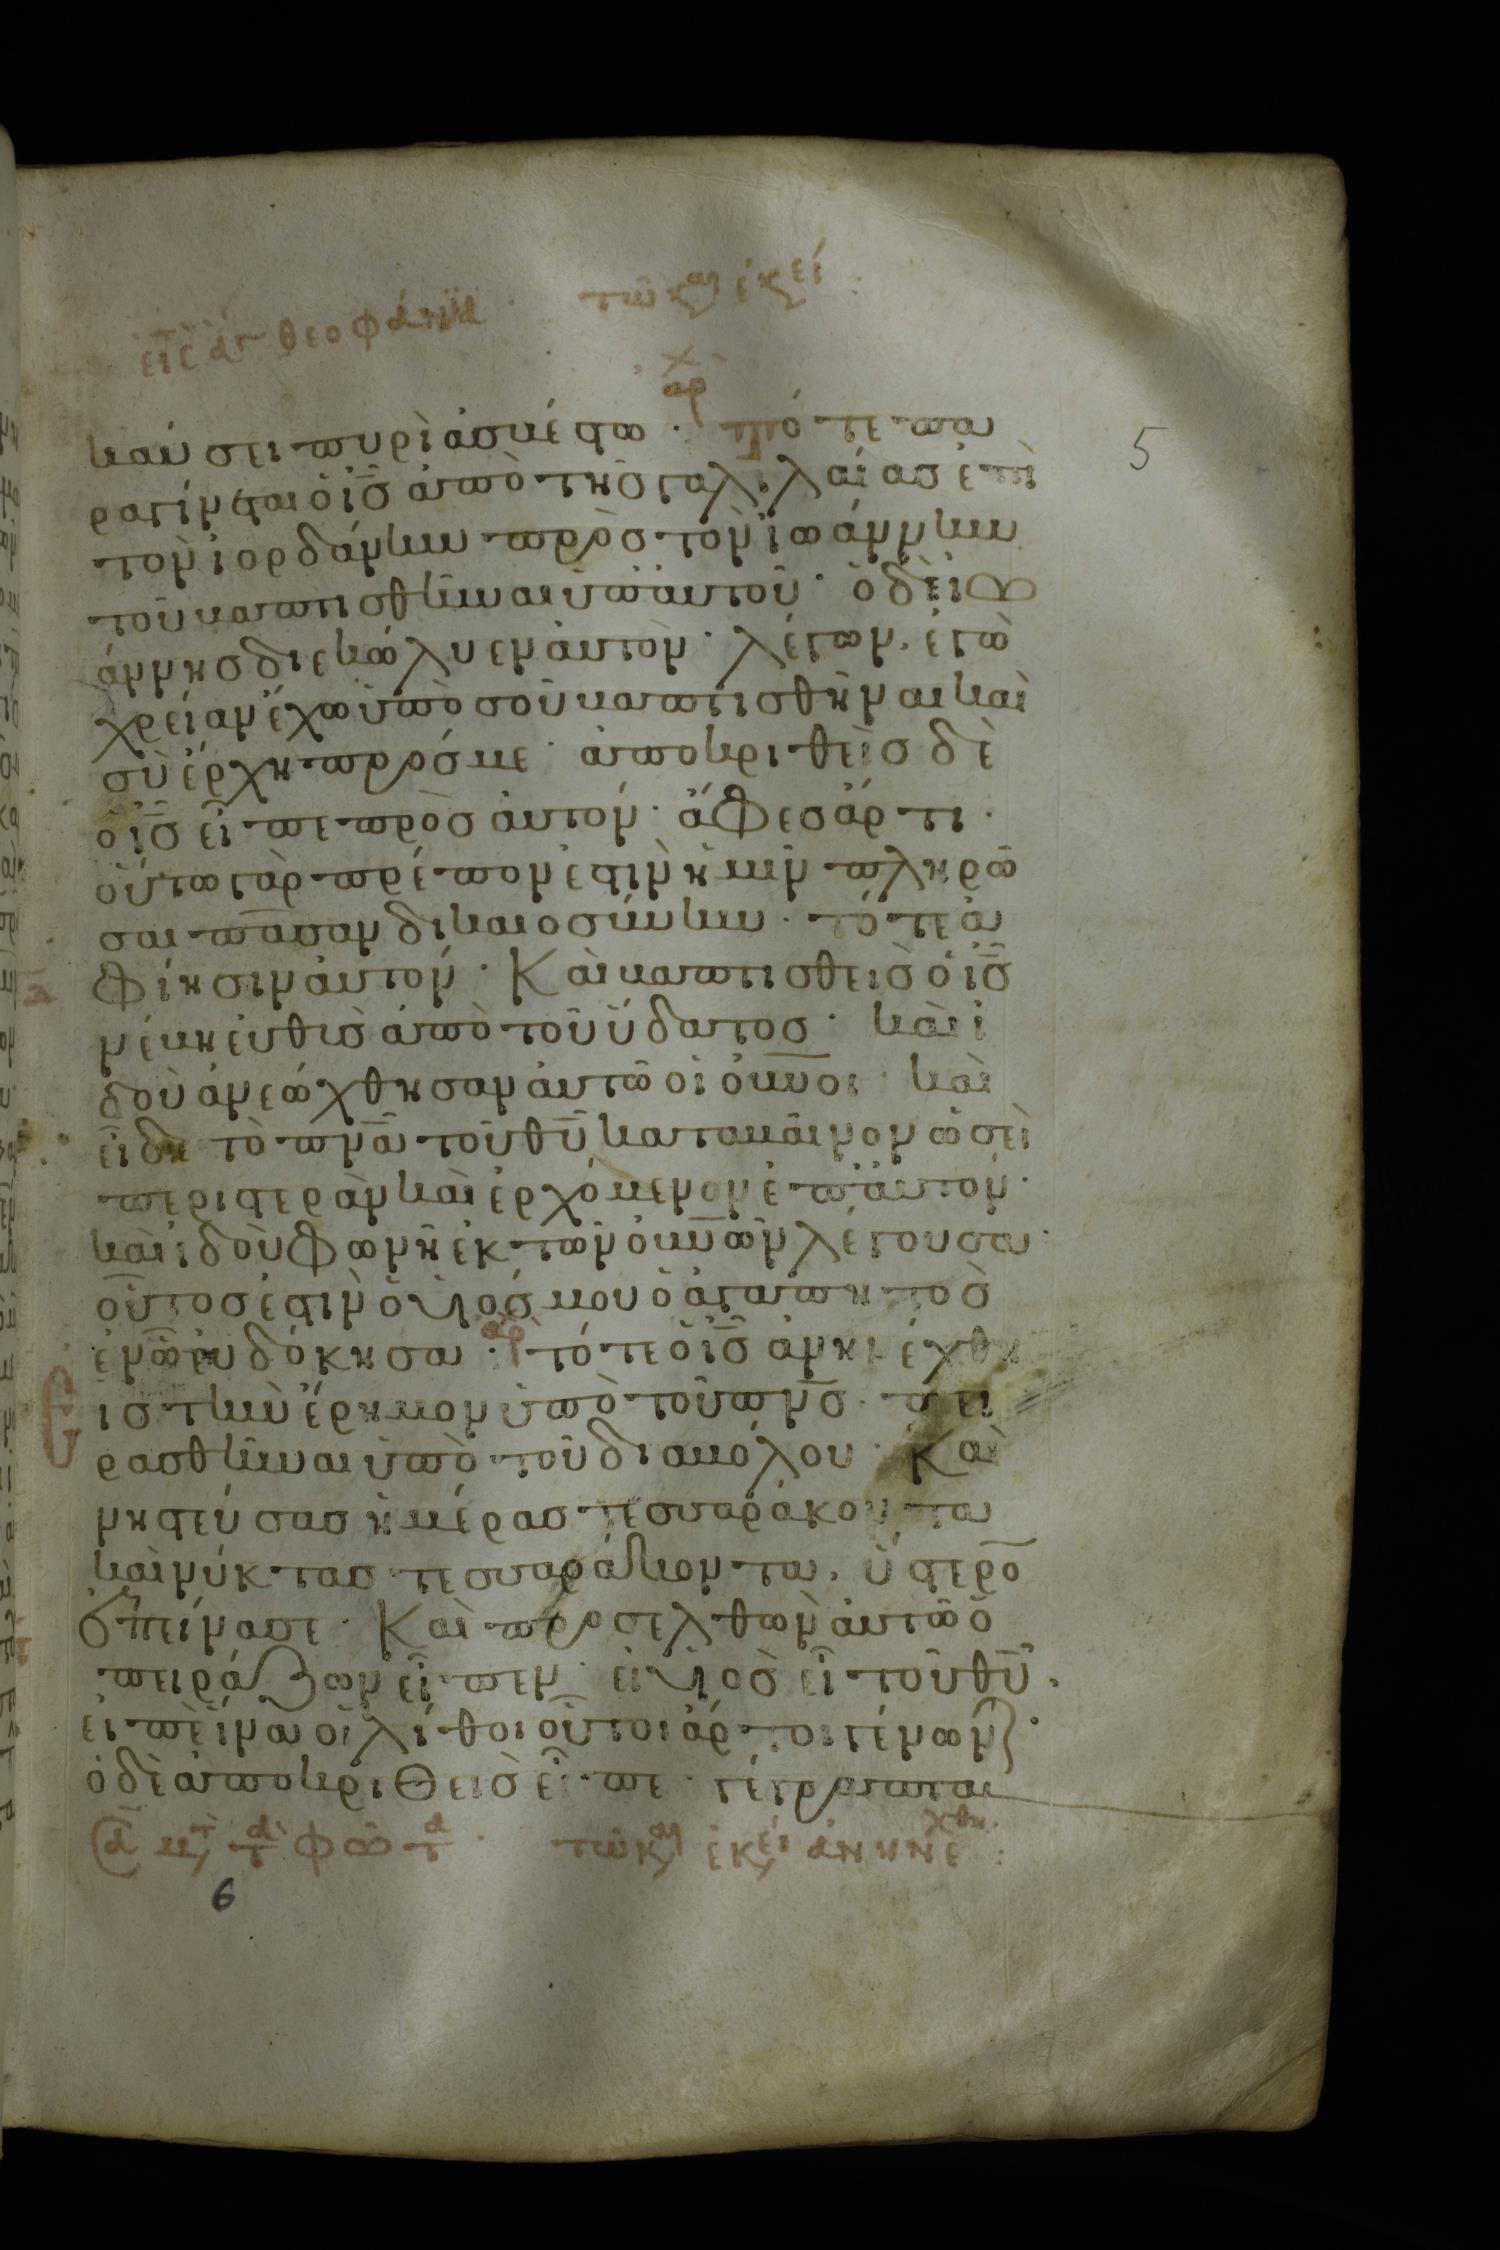 εἰς ἁγ θεοφάνϊα · τῶ κ αι ἐκεί :
αρχ
5
καύσει πυρὶ ἀσβέστω · τότε πα
ραγίνεται ὁ ἰς ἀπὸ τῆς γαλιλαίας ἐπὶ
τὸν ἰορδάνην πρὸς τὸν ἰωάννην
τοῦ βαπτισθῆναι ὑπ αὐτοῦ · ὁ δὲ ἰω
άννης διεκώλυεν αὐτὸν · λέγων · ἐγὼ
χρείαν ἔχω ὑπὸ σοῦ βαπτισθῆναι καὶ
σὺ ἔρχη πρός με · ἀποκριθεὶς δὲ
ὁ ἰς εἶπε πρὸς αὐτόν · ἄφες ἄρτι ·
οὕτω γὰρ πρέπον ἐστὶν ἡμῖν πληρῶ
σαι πᾶσαν δικαιοσύνην · τότε ἀ
φίησιν αὐτόν · Καὶ βαπτισθεὶς ὁ ἰς
ἀνέβη εὐθὺς ἀπὸ τοῦ ὕδατος · καὶ ἰ
δοὺ ἀνεώχθησαν αὐτῶ οἱ οὐνοι · καὶ
εἶδε τὸ πνα τοῦ θυ καταβαῖνον ὡσεὶ
περιστερὰν καὶ ἐρχόμενον ἐπ αὐτόν ·
καὶ ἰδοὺ φωνὴ ἐκ τῶν οὐνῶν λέγουσα ·
οὗτος ἐστιν ὁ υἱός μου ὁ ἀγαπητὸς
ἐν ὧ εὐδόκησα : αρχ τότε ὁ ἰς ἀνηνέχθη
ις τὴν ἔρημον ὑπὸ τοῦ πνς · πει
ρασθῆναι ὑπὸ τοῦ διαβόλου · Καὶ
νηστεύσας ἡμέρας τεσσαράκοντα
καὶ νύκτας τεσσαράκοντα, ὕστερο
ἐπείνασε · Καὶ προσελθὼν αὐτῶ ὁ
πειράζων εἶπεν · εἰ υἱὸς εἶ τοῦ θυ ·
εἰπὲ ἵνα οἱ λίθοι οὗτοι ἄρτοι γένωνται ·
ὁ δὲ ἀποκριθεὶς εἶπε · γέγραπται
τῶ κ αι ἐκεί ἀνηνέχθη :
6